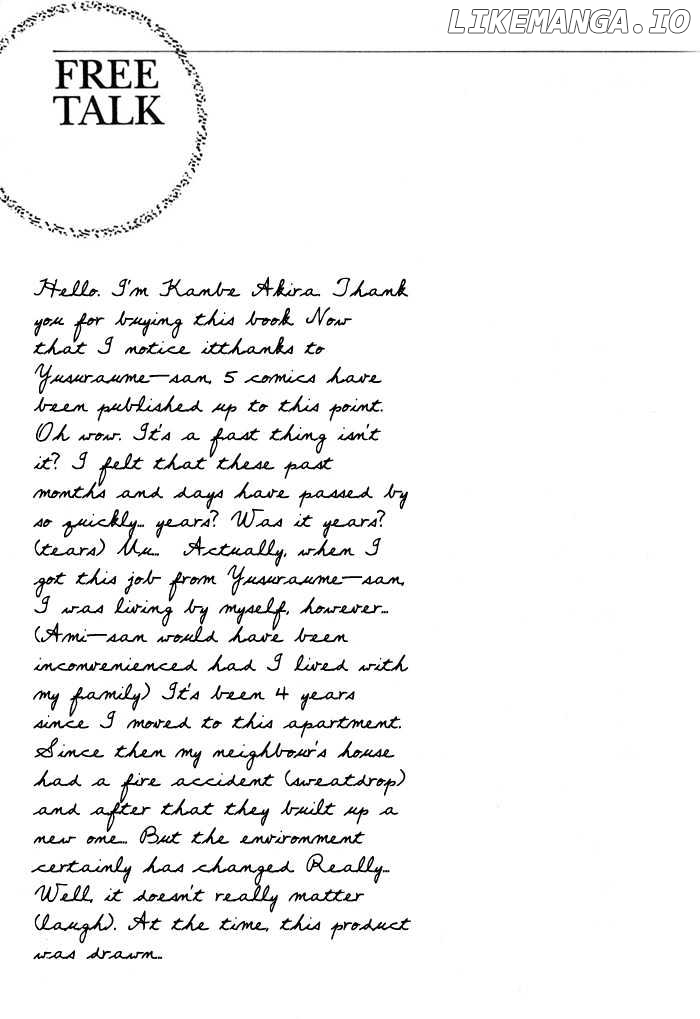 LIKEMANGA.IO
FREE
TALK
Hello. I'm Kanbe Akira. Thank
you for buying this book. Now
that I notice itthanks to
Yusuraume-san, 5 comics have
been published up to this point.
Oh wow. It's a fast thing isn't
it? I felt that these past
months and days have passed by
so quickly... years? Was it years?
(tears) Uu... Actually, when I
got this job from Yusuraume-san,
I was living by myself, however...
(Ami-san would have been
inconvenienced had I lived with
my family) It's been 4 years
since I moved to this apartment.
Since then my neighbour's house
had a fire accident (sweatdrop)
and after that they built up a
new one... But the environment
certainly has changed Really...
Well, it doesn't really matter
(laugh). At the time, this product
was drawn...